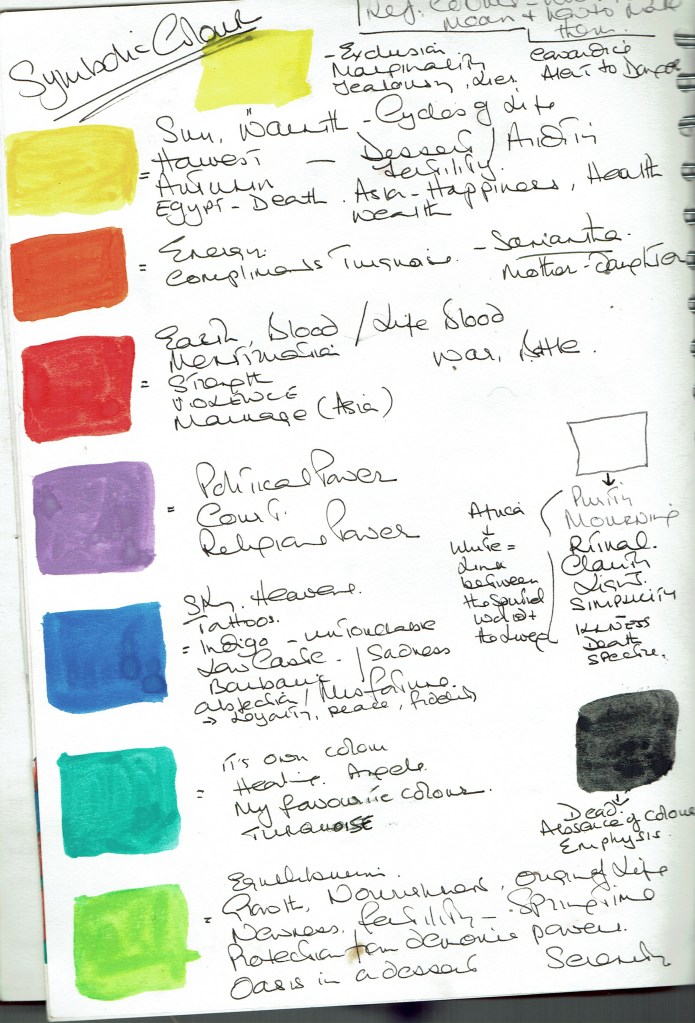 Symbolic Colour
Ref: Colour -
Mean + how to make
them
- Exclusion
Marginality
Jealousy, Lies.
Cowardice
Alert to Danger
Sun, Warmth - Cycles of Life
Harvest - Dessert / Aridity
= Autumn fertility.
Egypt - Death. Asia - Happiness, Health
Wealth
Energy.
= Compliments Turquoise. - Samantha.
Mother - Daughter
Earth, Blood / Life Blood
Menstruation War, Battle.
= Strength
VIOLENCE
Marriage (Asia)
Political Power
= Court.
Religious Power
Africa
White =
Link
between
the Spirited
World +
the Lived
Purity
Mourning
Ritual.
Clarity
Light.
Simplicity
ILLNESS
Death
Spectre.
Sky. Heavens.
Tattoos.
= Indigo - untouchable
Low Caste. / Sadness
Barbaric
abjection / Misfortune.
→ Loyalty, peace, fidelity
It's own colour
= Healing. Angels.
My favourite colour.
TURQUOISE
Dead.
Absence of colour
Emphysis.
Equilibrium.
= Growth, Nourishment, origin of Life
Newness. fertility - Springtime
Protection from demonic powers.
Oasis in a dessert Serenity